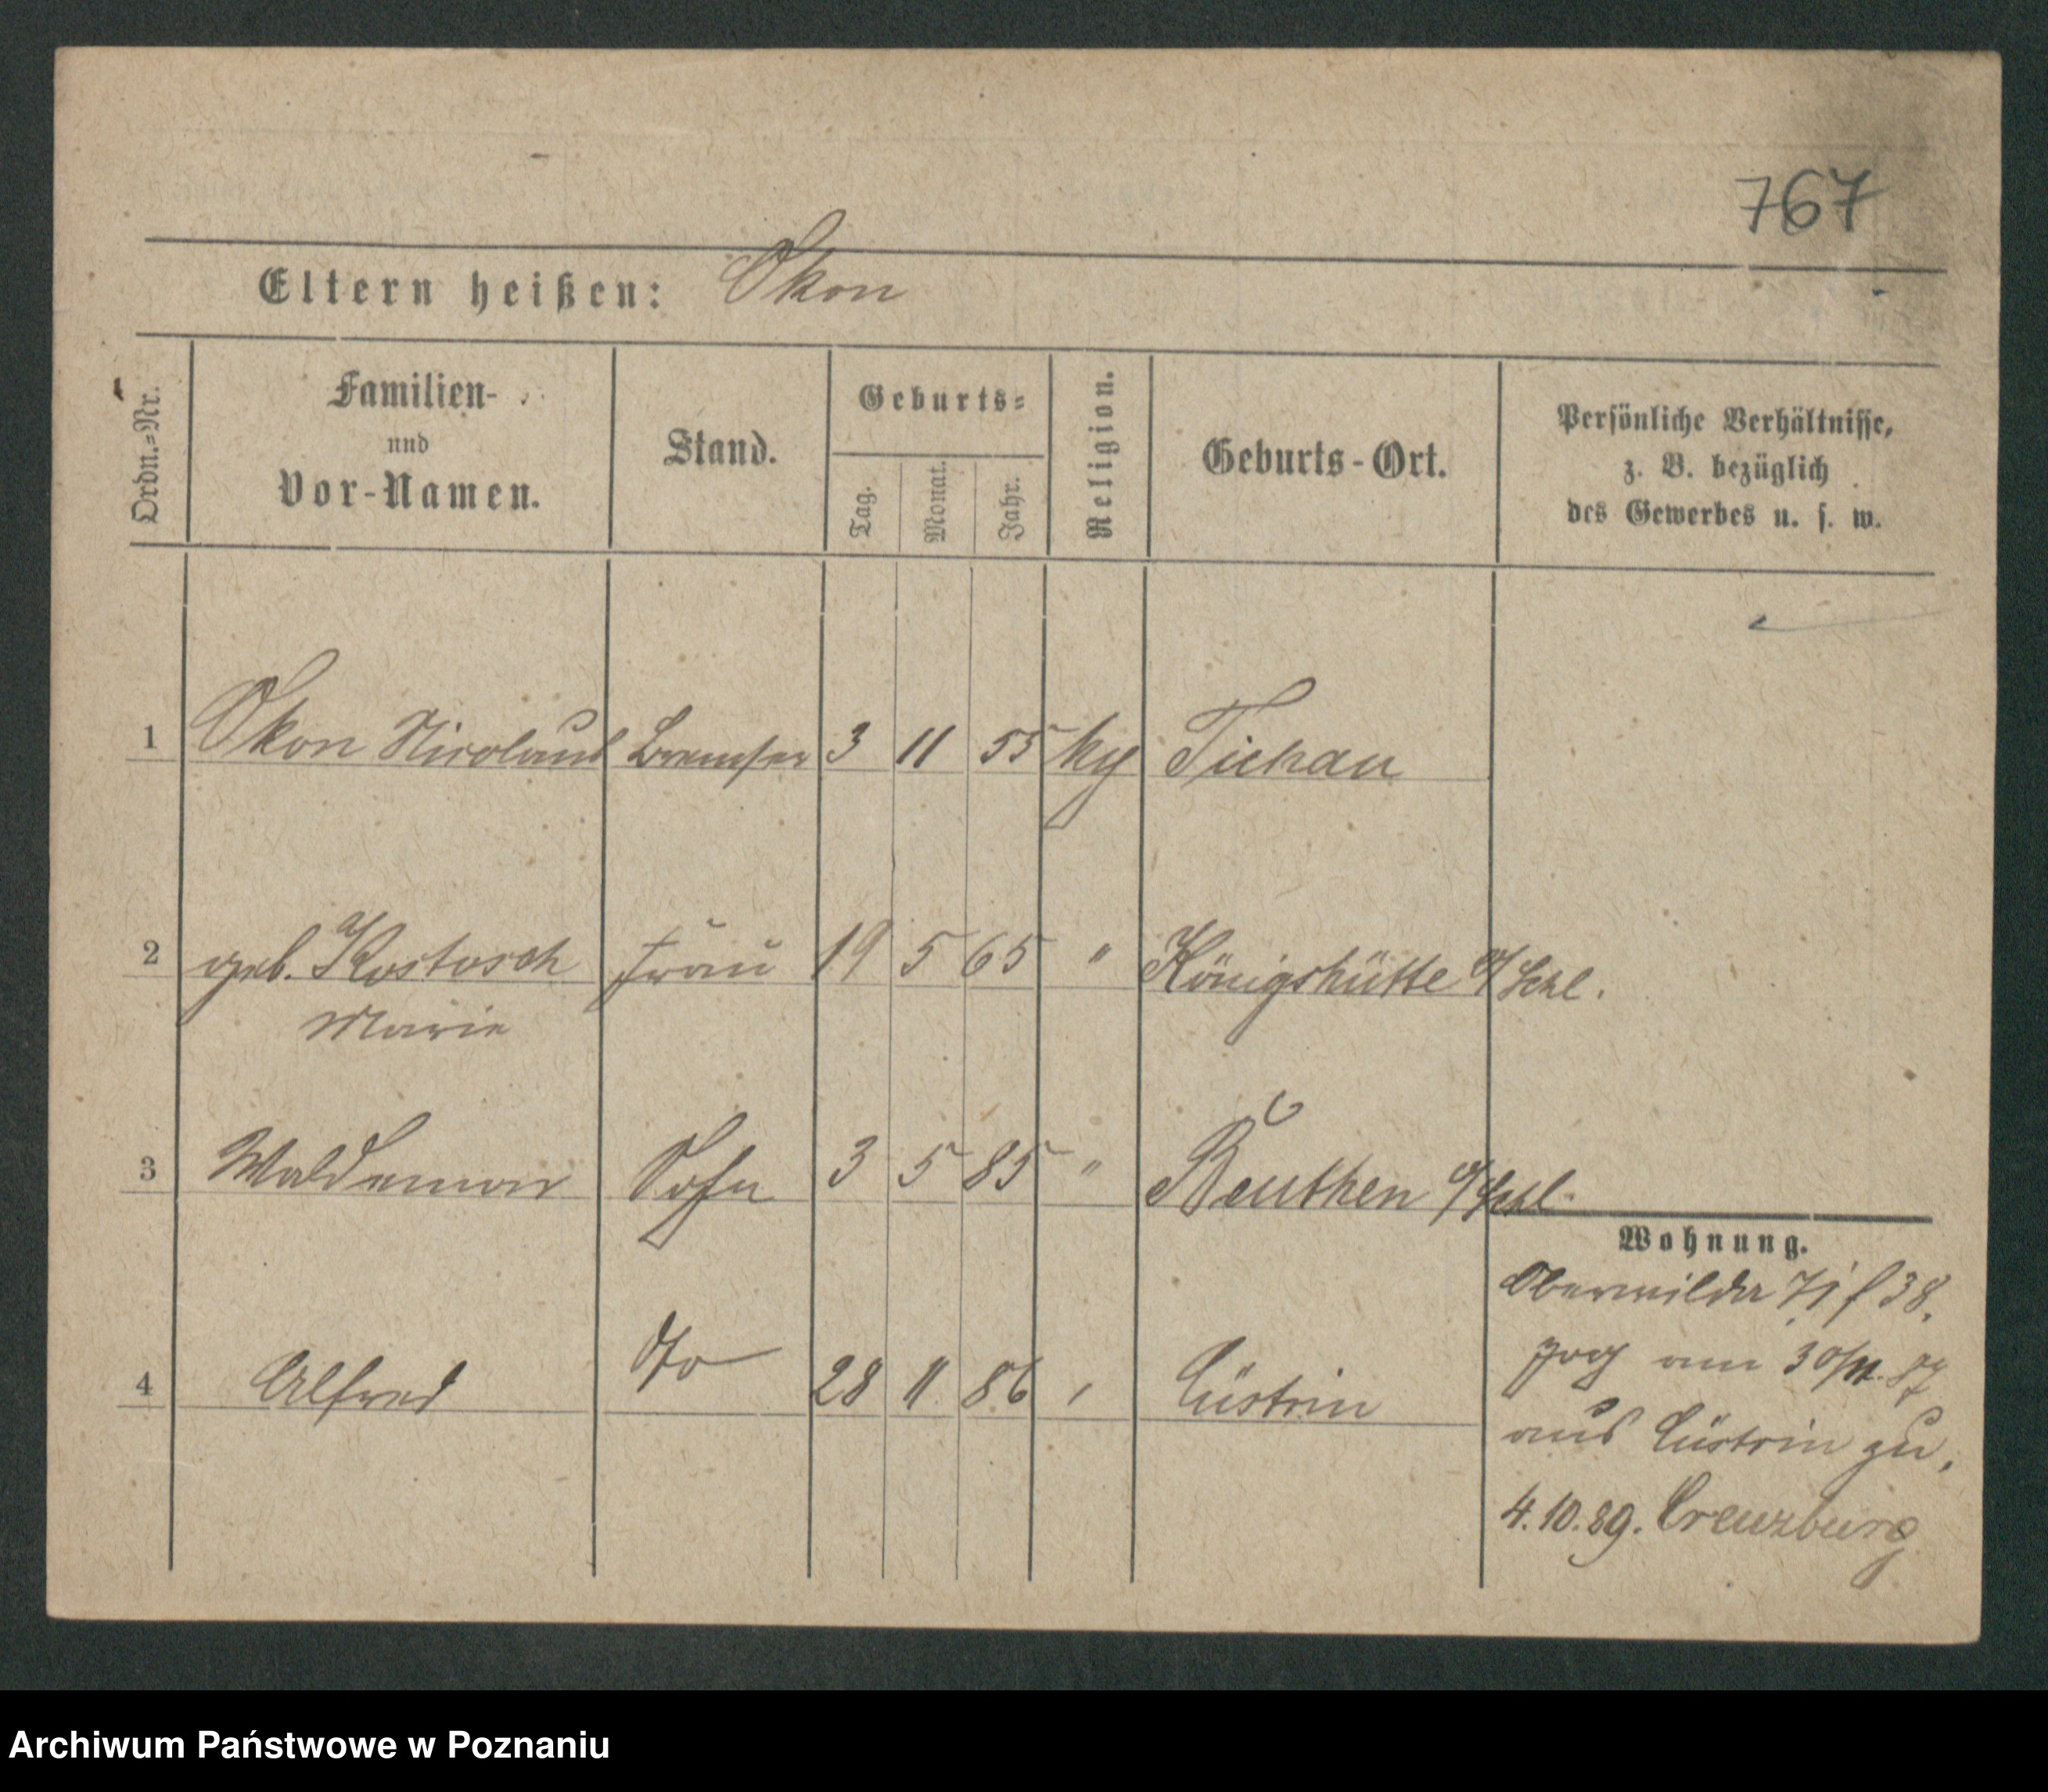 767
Eltern heißen: Okon
Ordn.=Nr.
Familien-
und
Vor-Namen.
Stand.
Geburts=
Tag.
Monat.
Jahr.
Religion.
Geburts-Ort.
Persönliche Verhältnisse,
z. B. bezüglich
des Gewerbes u. s. w.
1 Okon Nicolaus Bremser 3 11 55 Tichau
2 geb. Kostosch Frau 19 5 65 " Königshütte o/Schl.
Marie
3 Waldemar Sohn 3 5 85 " Beuthen o/Schl.
Wohnung.
Oberwilda 71 f 38.
4 Alfred dto 28 11 86 " Cüstrin
zog am 30/11. 87
aus Cüstrin zu.
4.10.89. Creuzburg
Archiwum Państwowe w Poznaniu